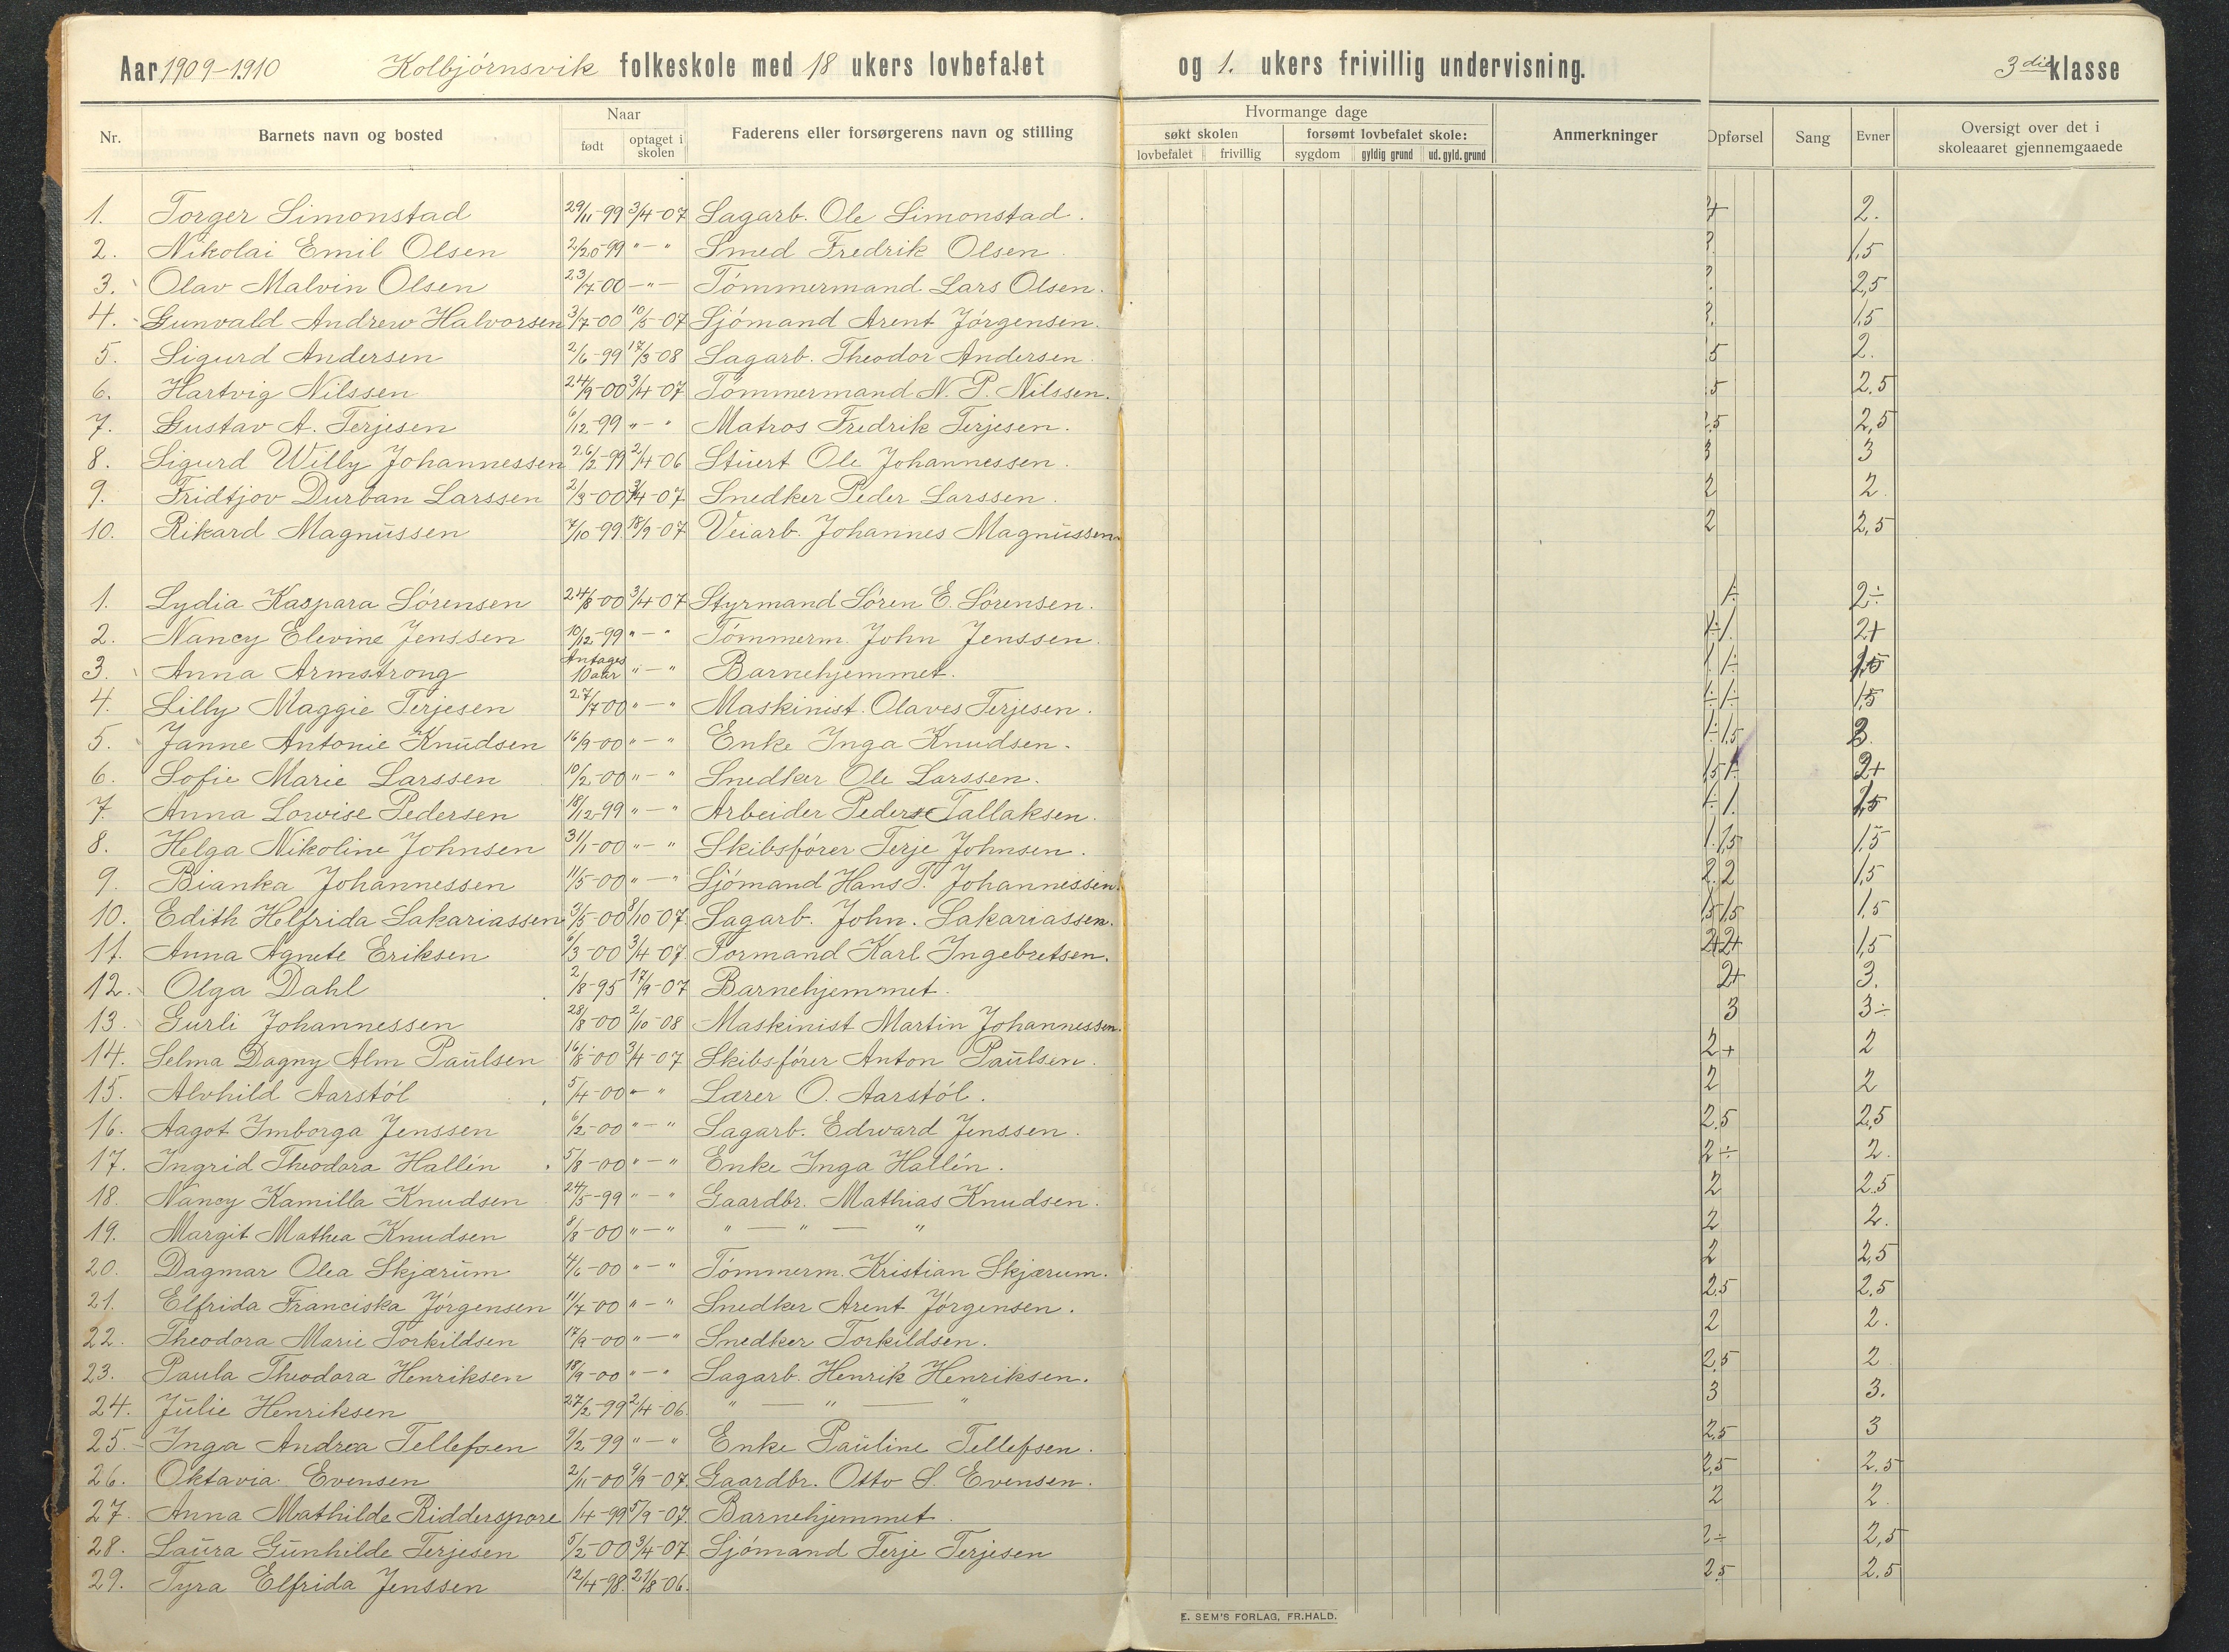 Aar 1909-1910 Kolbjørnsvik folkeskole med 18 ukers lovbefalet og 1. ukers frivillig undervisning. 3die klasse
Nr. Barnets navn og bosted Naar Faderens eller forsørgerens navn og stilling Hvormange dage Anmerkninger Opførsel Sang Evner Oversigt over det i skoleaaret gjennemgaaede
født optaget i skolen søkt skolen forsømt lovbefalet skole:
lovbefalet frivillig sygdom gyldig grund ud. gyld. grund
1. Torger Simonstad 29/11-99 3/4-07 Sagarb. Ole Simonstad. 2.
2. Nikolai Emil Olsen 99 " - " Smed Fredrik Olsen. 1,5
3. Olav Malvin Olsen 23/7-00 - " - Tømmermand Lars Olsen. 2,5
4. Gunvald Andrew Halvorsen 3/7-00 10/5-07 Sjømand Arent Jørgensen. 1,5
5. Sigurd Andersen 2/6-99 17/3-08 Sagarb. Theodor Andersen. 5 2.
6. Hartvig Nilssen 24/9-00 3/4-07 Tømmermand N. P. Nilssen. 5 2.5
7. Gustav A. Terjesen 6/12-99 " - " Matros Fredrik Terjesen. 2,5 2,5
8. Sigurd Willy Johannessen 99 2/4 06 Stuert Ole Johannessen. 3 3
9. Fridtjov Durban Larssen 2/3-00 3/4-07 Snedker Peder Larssen. 2 2.
10. Rikard Magnussen 7/10-99 18/9-07 Veiarb. Johannes Magnussen. 2 2,5
1. Lydia Kaspara Sørensen 24/8-00 3/4 07 Styrmand Søren E. Sørensen. 2÷
2. Nancy Elevine Jenssen 10/12-99 " - " Tømmerm. John Jenssen. 2+
3. Anna Armstrong Antages 10 aar " - " Barnehjemmet.
4. Lilly Maggie Terjesen 27/7 00 " - " Maskinist. Olaves Terjesen. 1,5
5. Janne Antonie Knudsen 16/9-00 " - " Enke Inga Knudsen.
6. Sofie Marie Larssen 10/2-00 " - " Snedker Ole Larssen. 2+
7. Anna Lovise Pedersen 18/12-99 " - " Arbeider Peder Tallaksen.
8. Helga Nikoline Johnsen 31/1-00 " - " Skibsfører Terje Johnsen. 1,5
9. Bianka Johannessen 11/5-00 " - " Sjømand Hans T. Johannessen. 2 2 1,5
10. Edith Helfrida Sakariassen 3/5-00 8/10-07 Sagarb. John. Sakariassen. 1,5 1,5 1,5
11. Anna Agnete Eriksen 6/3-00 3/4 07 Formand Karl Ingebretsen. 2+ 2+ 1,5
12. Olga Dahl 2/8-95 17/9-07 Barnehjemmet. 2+ 3.
13. Gurli Johannessen 28/8-00 2/10-08 Maskinist Martin Johannessen. 3 3÷
14. Selma Dagny Alm Paulsen 16/8-00 3/4-07 Skibsfører Anton Paulsen. 2+ 2
15. Alvhild Aarstøl 5/4-00 " - " Lærer O. Aarstøl. 2 2
16. Aagot Imborga Jenssen 6/2-00 " - " Sagarb. Edward Jenssen. 2.5 2,5
17. Ingrid Theodora Hallén 5/8-00 " - " Enke Inga Hallén. 2÷ 2.
18. Nancy Kamilla Knudsen 24/5-99 " - " Gaardbr. Mathias Knudsen. 2 2.5
19. Margit Mathea Knudsen 8/8-00 " - " " — " — " 2 2.
20. Dagmar Olea Skjærum 4/6-00 " - " Tømmerm. Kristian Skjærum. 2 2,5
21. Elfrida Franciska Jørgensen 11/7-00 " - " Snedker Arent Jørgensen. 2,5 2,5
22. Theodora Marie Torkildsen 17/9-00 " - " Snedker Torkildsen. 2 2.
23. Paula Theodora Henriksen 18/9-00 " - " Sagarb. Henrik Henriksen. 2,5 2
24. Julie Henriksen 27/2-99 2/4-06. " — " — " 3 3.
25. Inga Andrea Tellefsen 9/2-99 " - " Enke Pauline Tellefsen. 2,5 3
26. Oktavia Evensen 2/11-00 9/9-07. Gaardbr. Otto S. Evensen. 2,5 2.5
27. Anna Mathilde Ridderspore 1/4-99 5/9-07. Barnehjemmet. 2 2.
28. Laura Gunhilde Terjesen 5/2-00 3/4-07. Sjømand Terje Terjesen 2÷ 2,5
29. Tyra Elfrida Jenssen 12/4-98. 21/8-06. 2,5 2.5
E. SEM'S FORLAG, FR.HALD.